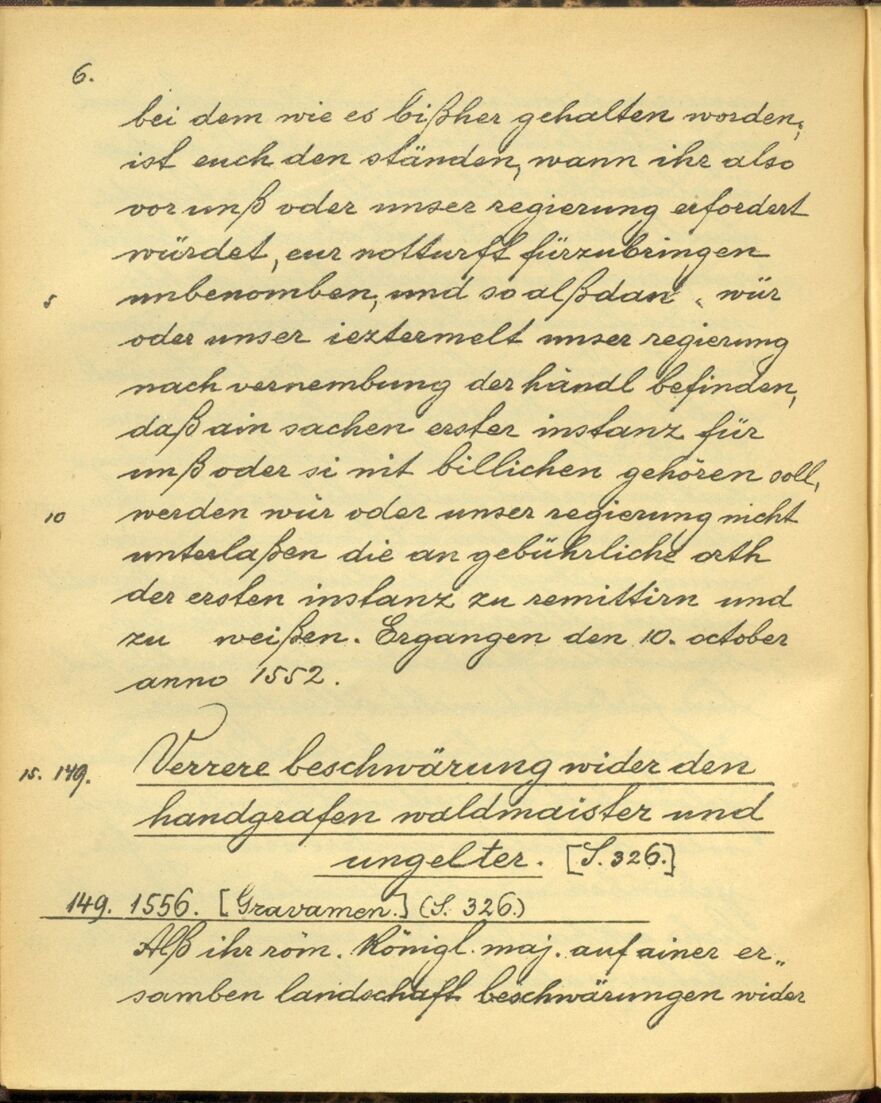 6.
bei dem wie es bißher gehalten worden,
ist euch den ständen, wann ihr also
vor unß oder unser regierung erfordert
würdet, eur notturft fürzubringen
5 unbenomben, und so alßdan wür
oder unser ieztermelt unser regierung
nach vernembung der händl befinden,
daß ain sachen erster instanz für
unß oder si nit billichen gehören soll,
10 werden wür oder unser regierung nicht
unterlaßen die an gebührliche orth
der ersten instanz zu remittirn und
zu weißen. Ergangen den 10. october
anno 1552.
15. 149. Verrere beschwärung wider den
handgrafen waldmaister und
ungelter. [S. 326.]
149. 1556. [Gravamen.] (S. 326.)
Alß ihr röm. Königl. maj. auf ainer er„
samben landschaft beschwärungen wider